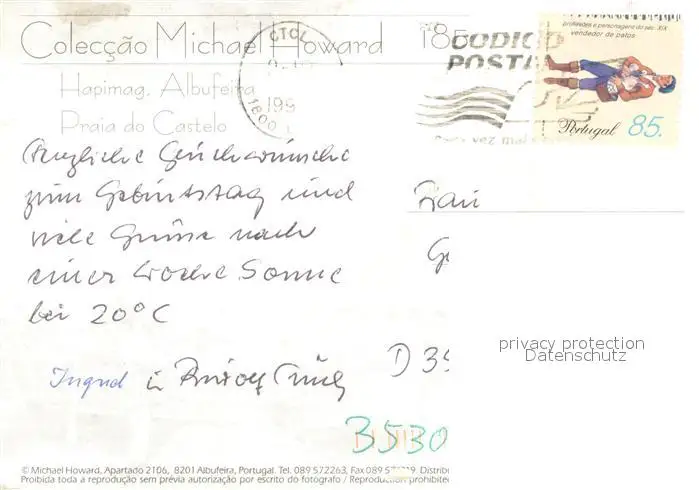 Colecção Michael Howard 185
Hapimag. Albufeira
Praia do Castelo
CTCL
199
1800
CODIGO
POSTAL
profissões e personagens do séc. XIX
vendedor de patos
Portugal 85.
Herzliche Glückwünsche
zum Geburtstag und
viele Grüsse nach
einer Woche Sonne
bei 20°C
Ingrid u Rudolf
Frau
D 35
3530
privacy protection
Datenschutz
© Michael Howard, Apartado 2106, 8201 Albufeira, Portugal. Tel. 089 572263, Fax 089
Proibida toda a reprodução sem prévia autorização por escrito do fotógrafo / Reproduction prohibited